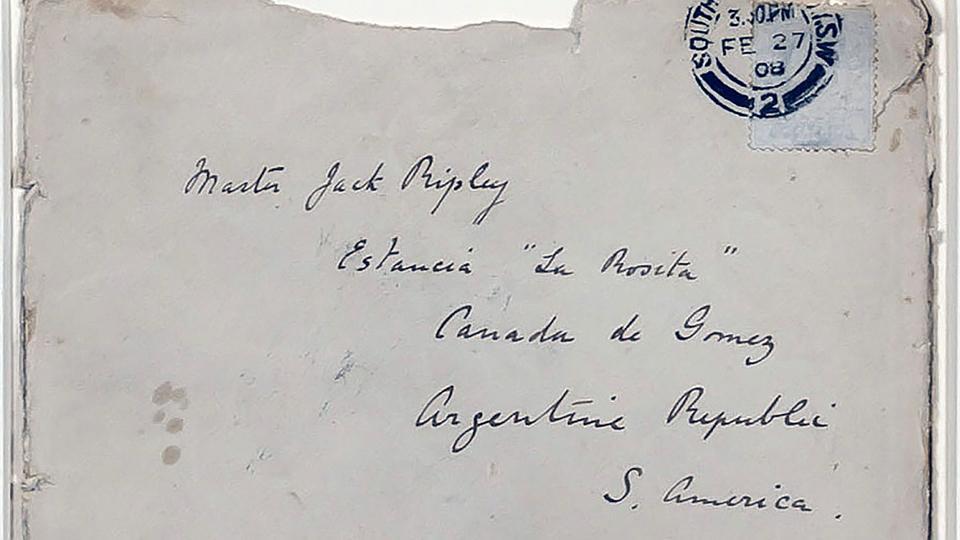 SOUTH
3. 0.PM
FE 27
08
2
Master Jack Ripley
Estancia "La Rosita"
Canada de Gomez
Argentine Republic
S. America.